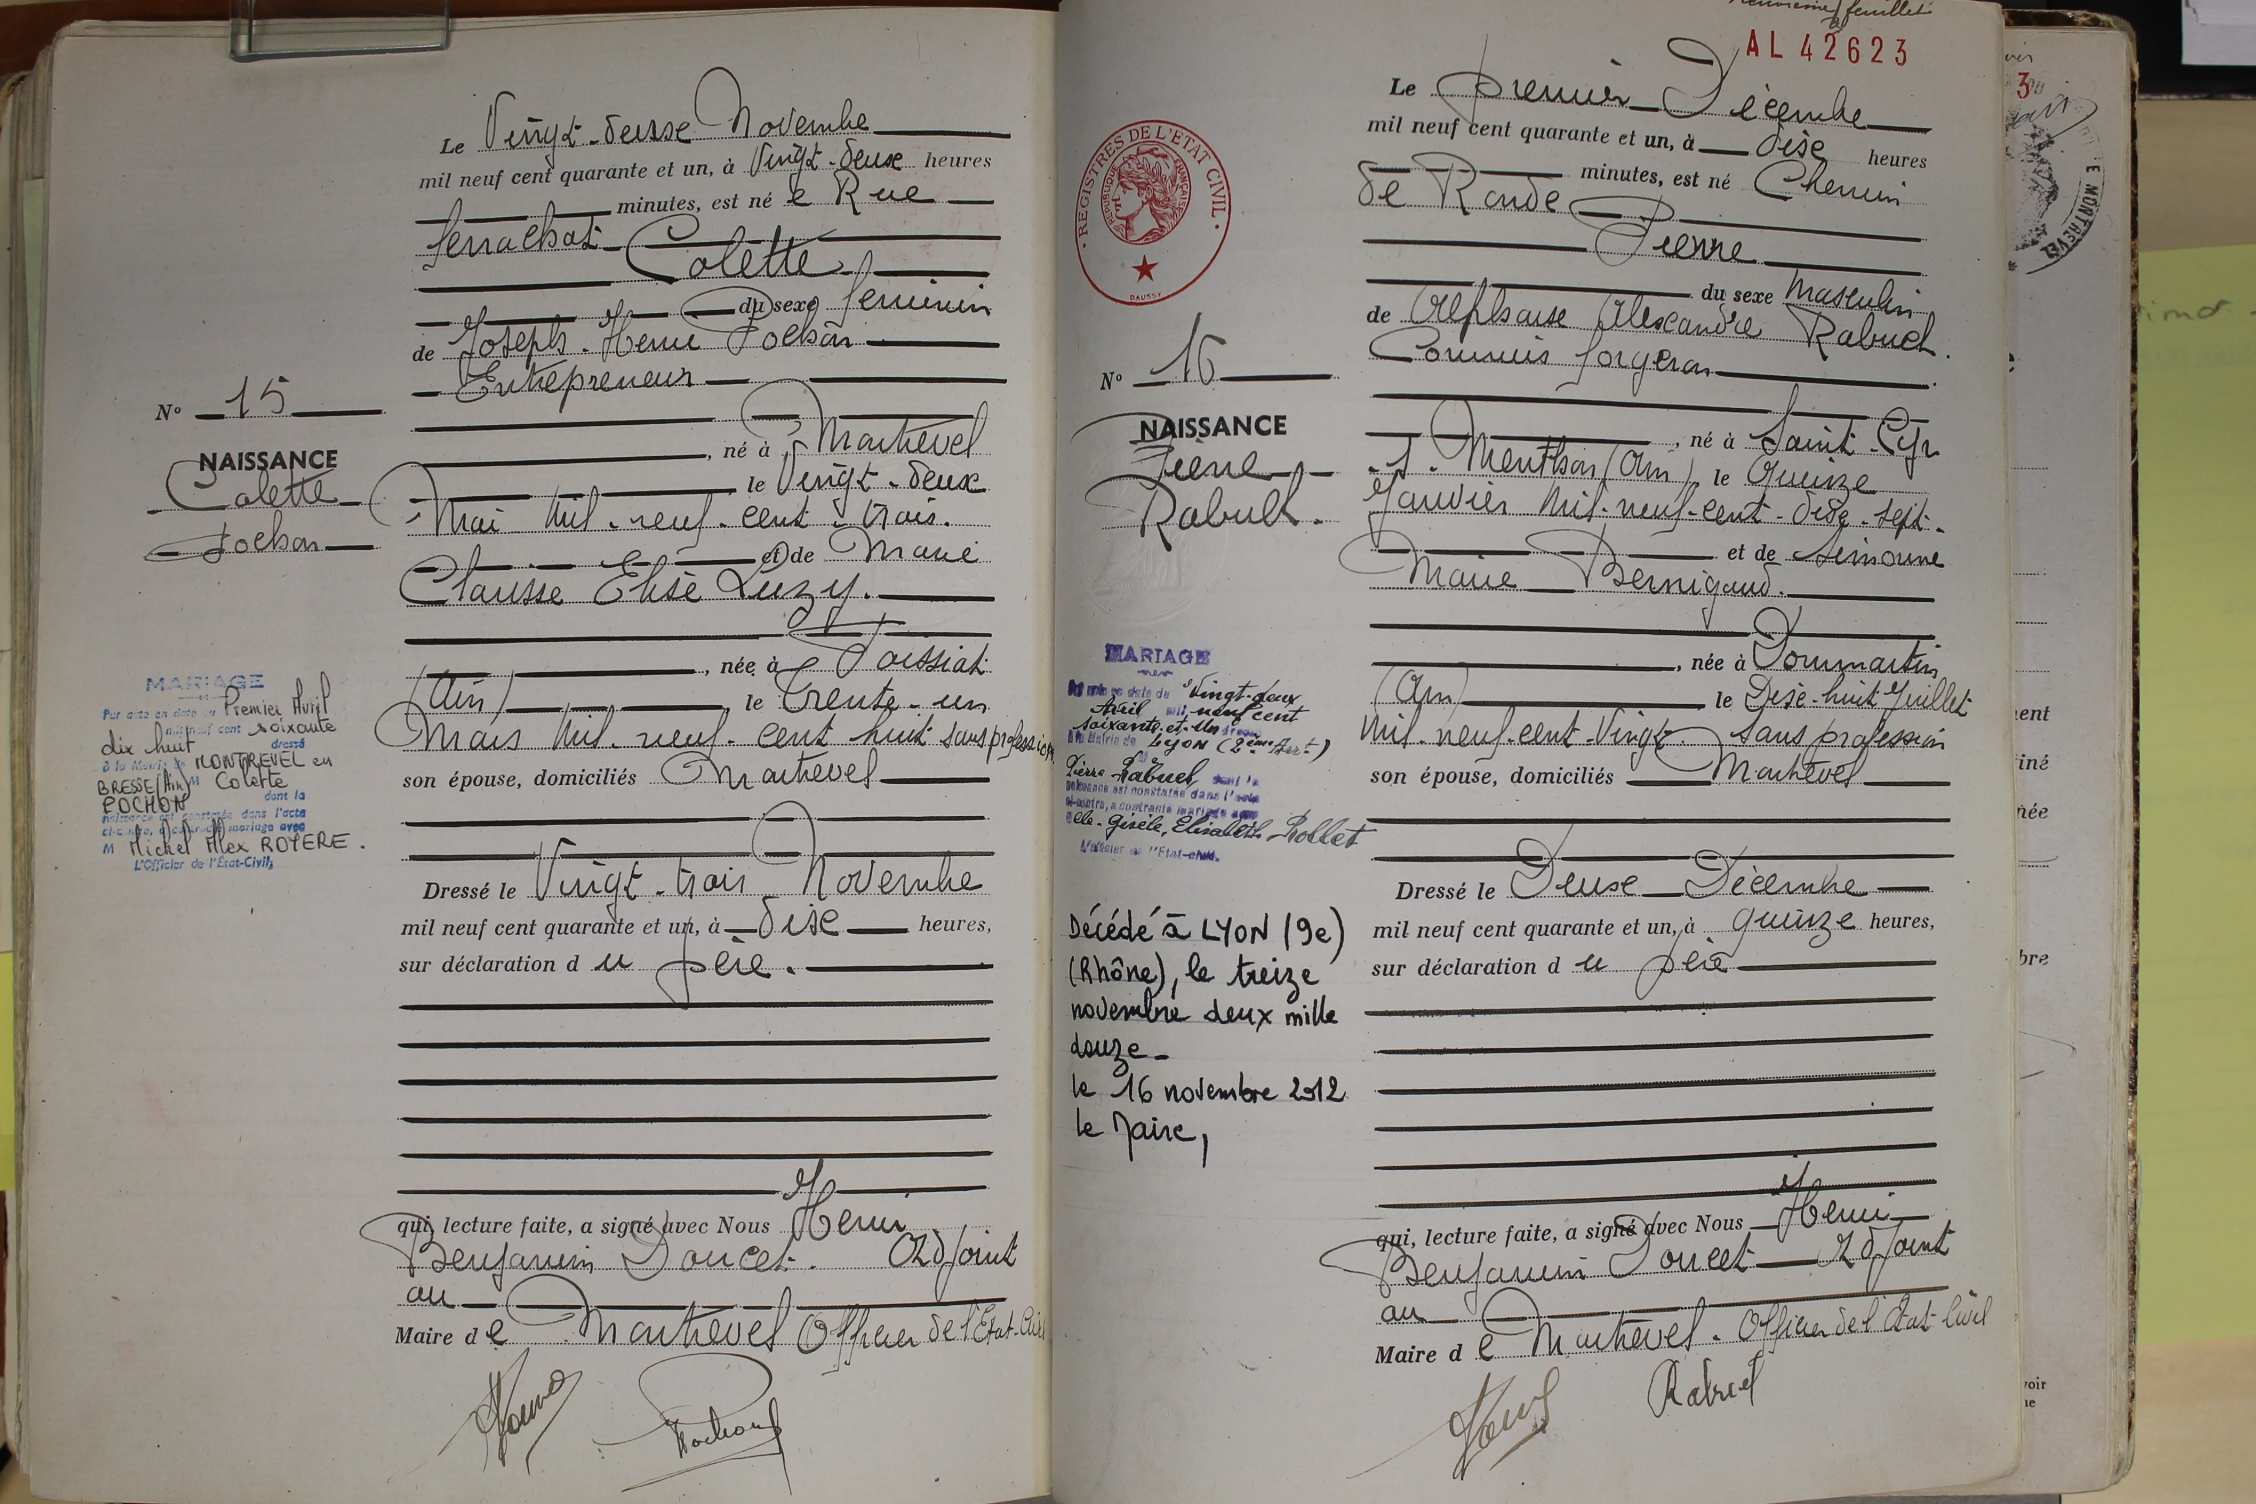 Le Vingt-deuxe Novembre
mil neuf cent quarante et un, à Vingt-deuxe heures
minutes, est né e Rue
Ferrachat
Colette
du sexe féminin
de Joseph-Henri Pochon
Entrepreneur
, né à Montrevel
le Vingt-deux
Mai mil-neuf-cent-trois.
et de Marie
Clarisse Elise Luzy.
, née à Foissiat
(Ain) le Trente-un
Mars mil-neuf-cent huit sans profession
son épouse, domiciliés Montrevel
Dressé le Vingt-trois Novembre
mil neuf cent quarante et un, à dix heures,
sur déclaration d u père.
qui, lecture faite, a signé avec Nous Henri
Benjamin Doucet. Adjoint
au
Maire d e Montrevel Officier de l'Etat-Civil
Pochon
N° 15
NAISSANCE
Colette
Pochon
MARIAGE
Par acte en date du Premier Avril
mil neuf cent soixante
dix huit dressé
à la Mairie de MONTREVEL en
BRESSE (Ain) M Colette
POCHON dont la
naissance est constatée dans l'acte
ci-contre, a contracté mariage avec
M Michel Alex ROYERE.
L'Officier de l'État-Civil,
feuillet
AL 42623
Le premier Décembre
mil neuf cent quarante et un, à dix heures
minutes, est né Chemin
de Ronde
Pierre
du sexe masculin
de Alphonse Alexandre Rabuel.
Commis forgeron
, né à Saint-Cyr
-s-Menthon (Ain), le Quinze
Janvier mil-neuf-cent-dix-sept-
et de Simonne
Marie Bernigaud.
, née à Dommartin
(Ain) le Dix-huit Juillet
mil-neuf-cent-Vingt sans profession
son épouse, domiciliés Montrevel
Dressé le Deuxe Décembre
mil neuf cent quarante et un, à quinze heures,
sur déclaration d u père
qui, lecture faite, a signé avec Nous Henri
Benjamin Doucet Adjoint
au
Maire d e Montrevel. Officier de l'Etat-Civil
Rabuel
REGISTRES DE L'ETAT CIVIL
REPUBLIQUE FRANÇAISE
DAUSSY
N° 16
NAISSANCE
Pierre
Rabuel.
MARIAGE
Par acte en date du Vingt-deux
Avril mil neuf cent
soixante-et-un dressé
à la Mairie de LYON (2ème Arrt)
Pierre Rabuel dont la
naissance est constatée dans l'acte
ci-contre, a contracté mariage avec
elle-Gisèle, Elisabeth Rollet
L'officier de l'Etat-civil.
Décédé à LYON (9e)
(Rhône), le treize
novembre deux mille
douze_
le 16 novembre 2012
le Maire,